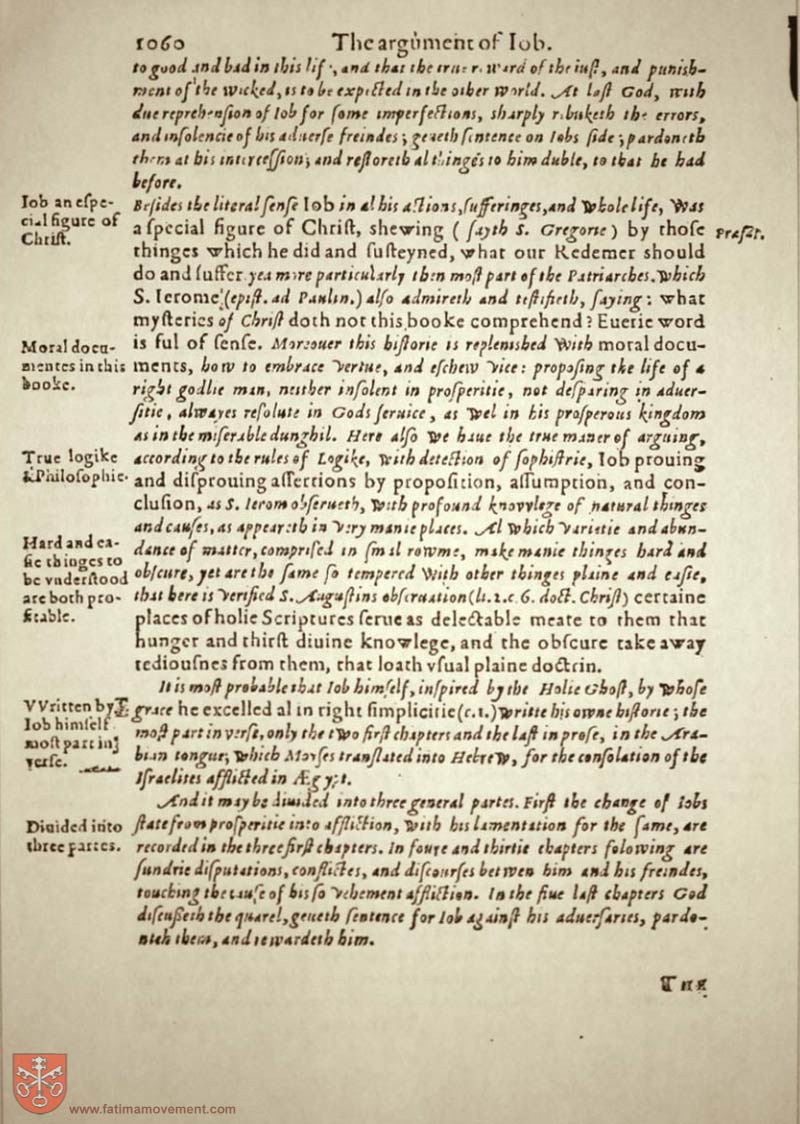 1060 The argument of Iob.
to good and bad in this life, and that the true reward of the iust, and punish-
ment of the wicked, is to be expected in the other world. At last God, with
due reprehension of Iob for some imperfections, sharply rebuketh the errors,
and insolencie of his aduerse freindes; geueth sentence on Iobs side; pardoneth
them at his intercession; and restoreth al thinges to him duble, to that he had
before.
Iob an espe-
cial figure of
Christ.
Besides the literal sense Iob in al his actions, sufferinges, and whole life, was
a special figure of Christ, shewing ( sayth S. Gregorie ) by those
Præfat.
thinges which he did and susteyned, what our Redemer should
do and suffer yea more particularly then most part of the Patriarches. Which
S. Ierome (epist. ad Paulin.) also admireth and testifieth, saying: what
mysteries of Christ doth not this booke comprehend? Euerie word
is ful of sense. Moreouer this historie is replenished with moral docu-
Moral docu-
mentes in this
booke.
ments, how to embrace vertue, and eschew vice: proposing the life of a
right godlie man, neither insolent in prosperitie, not desparing in aduer-
sitie, alwayes resolute in Gods seruice, as wel in his prosperous kingdom
as in the miserable dunghil. Here also we haue the true maner of arguing,
True logike
& Philosophie.
according to the rules of Logike, with detection of sophistrie, Iob prouing
and disprouing assertions by proposition, assumption, and con-
clusion, as S. Ierom obserueth, with profound knovvlege of natural thinges
and causes, as appeareth in very manie places. Al which varietie and abun-
Hard and ea-
sie thinges to
be vnderstood
are both pro-
fitable.
dance of matter, comprised in smal rowme, make manie thinges hard and
obscure, yet are the same so tempered with other thinges plaine and easie,
that here is verified S. Augustins obseruation (li. 2. c. 6. doct. Christ) certaine
places of holie Scriptures serue as delectable meate to them that
hunger and thirst diuine knowlege, and the obscure take away
tediousnes from them, that loath vsual plaine doctrin.
It is most probable that Iob himself, inspired by the Holie Ghost, by whose
VVritten by
Iob himself
most part in
verse.
grace he excelled al in right simplicitie (c. 1.) writte his owne historie; the
most part in verse, only the two first chapters and the last in prose, in the Ara-
bian tongue; which Moyses translated into Hebrew, for the consolation of the
Israelites afflicted in Ægypt.
And it may be diuided into three general partes. First the change of Iobs
Diuided into
three partes.
state from prosperitie into affliction, with his lamentation for the same, are
recorded in the three first chapters. In foure and thirtie chapters folowing are
sundrie disputations, conflictes, and discourses betwen him and his freindes,
touching the cause of his so vehement affliction. In the fiue last chapters God
discusseth the quarel, geueth sentence for Iob against his aduersaries, pardo-
neth them, and rewardeth him.
THE
www.fatimamovement.com